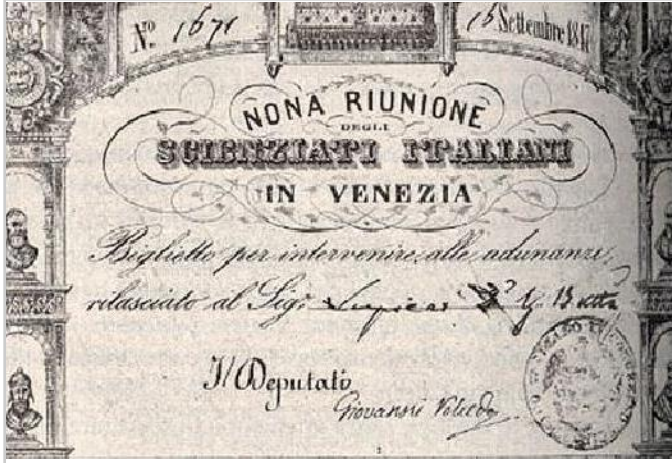 Nº 1671
16 Settembre 1847
NONA RIUNIONE
DEGLI
SCIENZIATI ITALIANI
IN VENEZIA
Biglietto per intervenire alle adunanze,
rilasciato al Sig.
Il Deputato
Giovanni